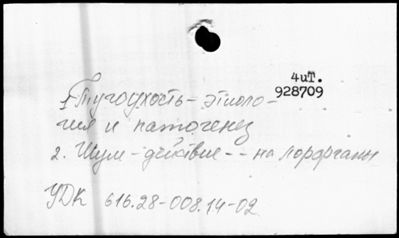 4uT.
928709
1. Тугоухость - этиоло-
гия и патогенез
2. Шум - действие -- на лорорганы
УДК 616.28-008.14-02